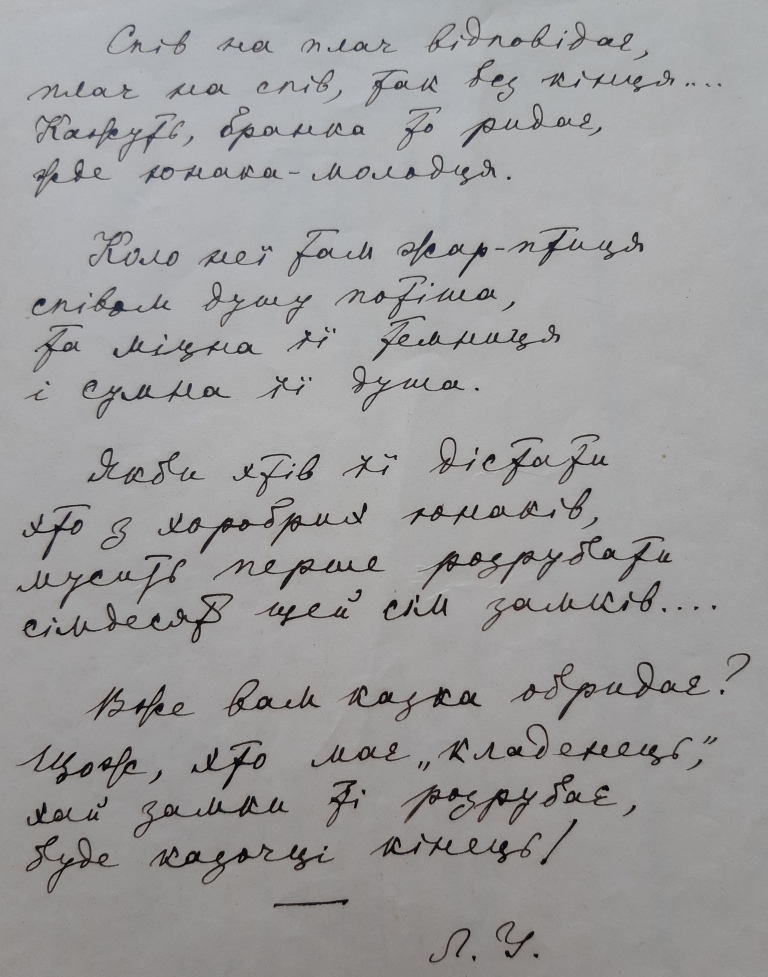 Спів на плач відповідає,
плач на спів, так без кінця....
Кажуть, бранка то ридає,
жде юнака-молодця.
Коло неї там жар-птиця
співом душу потіша,
та міцна її темниця
і сумна її душа.
Якби хтів її дістати
хто з хоробрих юнаків,
мусить перше розрубати
сімдесят щей сім замків....
Вже вам казка обридає?
Щож, хто має „кладенець”,
хай замки ті розрубає,
буде казочці кінець!
Л. У.